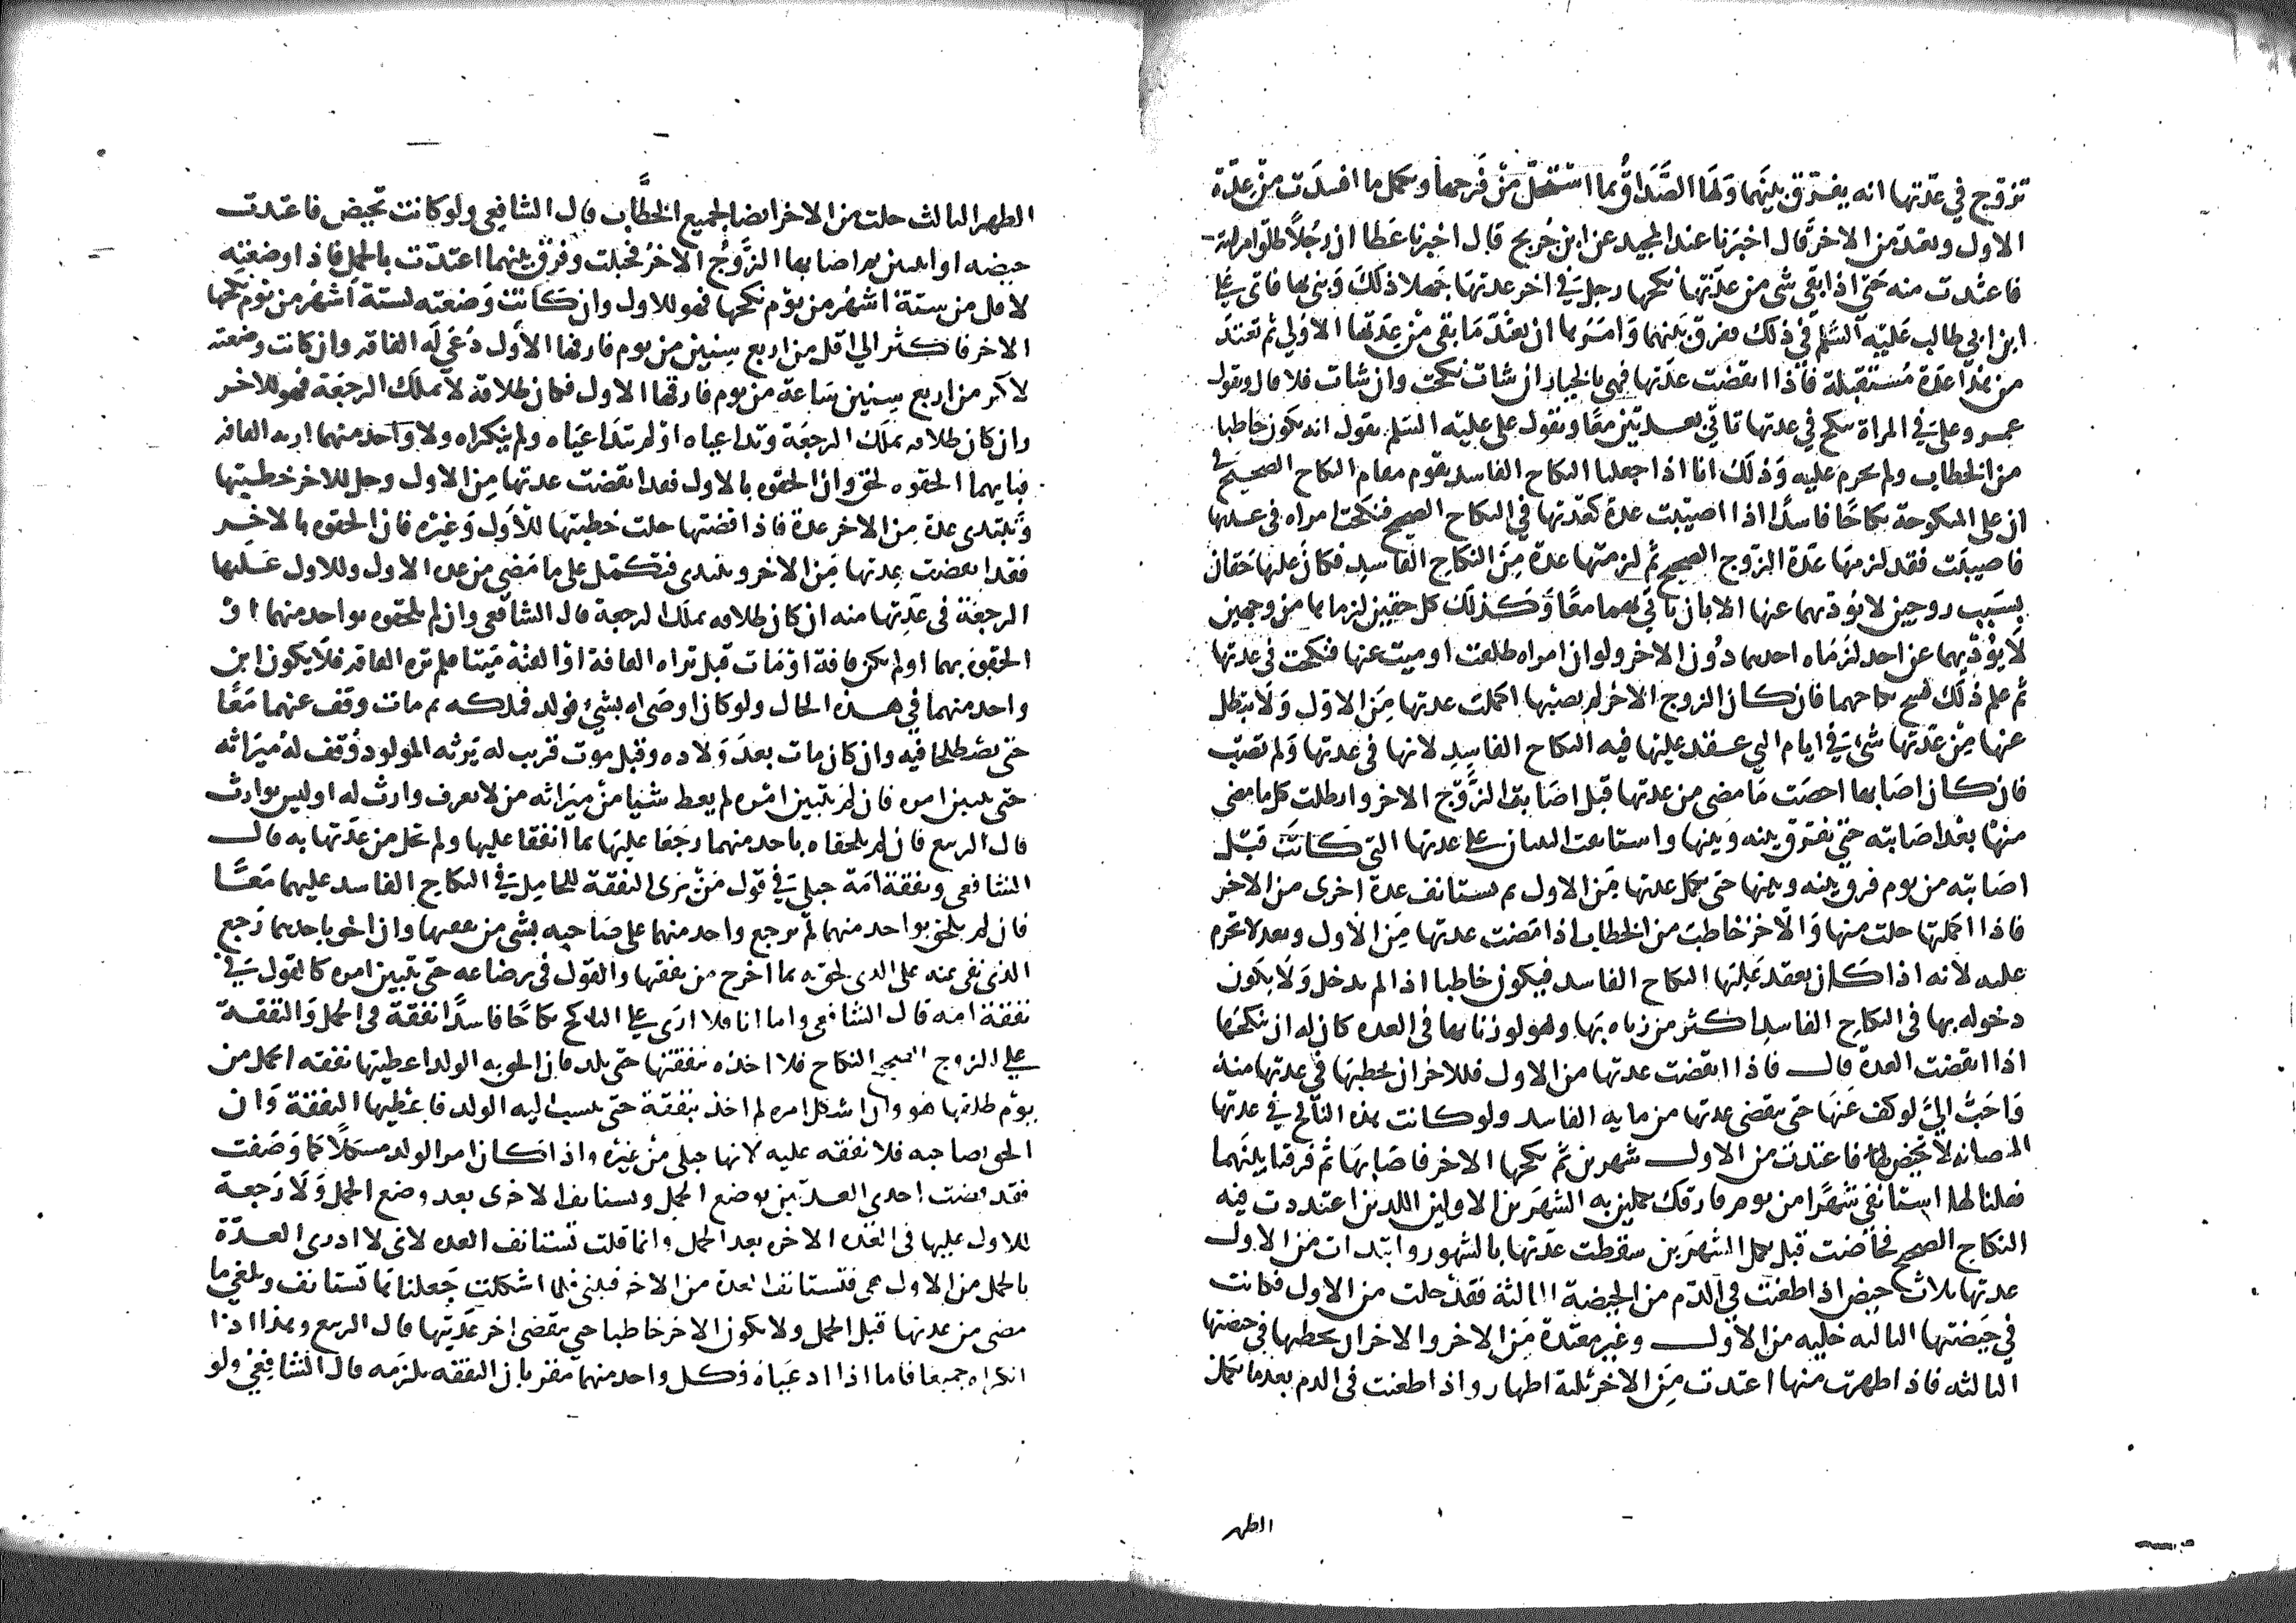 تزوج في عدتها انه يفرق بينهما ولها الصداق بما استحل من فرجها وتكمل ما افسدت من عدة
الاول وتعتد من الاخر قال اخبرنا عبد المجيد عن ابن جريج قال اخبرنا عطا ان رجلا طلق امراته
فاعتدت منه حتى اذا بقي شي من عدتها نكحها رجل في اخر عدتها جهلا ذلك وبنى بها فاتي علي
ابن ابي طالب عليه السلم في ذلك ففرق بينهما وامرها ان تعتد ما بقي من عدتها الاولى ثم تعتد
من هذا عدة مستقبلة فاذا انقضت عدتها فهي بالخيار ان شات نكحت وان شات فلا قال وبقول
عمر وعلي في المراة تنكح في عدتها تاتي بعدتين معا وبقول علي عليه السلم نقول انه يكون خاطبا
من الخطاب ولم تحرم عليه وذلك انا اذا جعلنا النكاح الفاسد يقوم مقام النكاح الصحيح في
ان على المنكوحة نكاحا فاسدا اذا اصيبت عدة كعدتها في النكاح الصحيح فنكحت امراه في عدتها
فاصيبت فقد لزمها عدة الزوج الصحيح ثم لزمتها عدة من النكاح الفاسد فكان عليها حقان
بسبب زوجين لا يوديهما عنها الا بان تاتي بهما معا وكذلك كل حقين لزماها من وجهين
لا يوديهما عن احد لزماه احدهما دون الاخر ولو ان امراه طلقت او ميت عنها فنكحت في عدتها
ثم علم ذلك فسخ نكاحهما فان كان الزوج الاخر لم يصبها اكملت عدتها من الاول ولا تبطل
عنها من عدتها شي في ايام التي عقد عليها فيه النكاح الفاسد لانها في عدتها ولم تصب
فان كان اصابها احصت ما مضى من عدتها قبل اصابة الزوج الاخر وابطلت كل ما مضى
منها بعد اصابته حتى تفرق بينه وبينها واستانفت البنيان على عدتها التي كانت قبل
اصابته من يوم فرق بينه وبينها حتى تكمل عدتها من الاول ثم تستانف عدة اخرى من الاخر
فاذا اكملتها حلت منها والاخر خاطب من الخطاب اذا مضت عدتها من الاول وبعد لا تحرم
عليه لانه اذا كان يعقد عليها النكاح الفاسد فيكون خاطبا اذا لم يدخل ولا يكون
دخوله بها في النكاح الفاسد اكثر من زناه بها وهو لو زنا بها في العده كان له ان ينكحها
اذا انقضت العدة قال فاذا انقضت عدتها من الاول فللاخر ان يخطبها في عدتها منه
واحب الي لو كف عنها حتى تنقضي عدتها من مايه الفاسد ولو كانت هذه الناكح في عدتها
المصابه لا تحيض فاعتدت من الاول شهرين ثم نكحها الاخر فاصابها ثم فرقنا بينهما
فقلنا لها استانفي شهرا من يوم فارقك تكملين به الشهرين الاولين اللذين اعتددت فيه
النكاح الصحيح فحاضت قبل تكمل الشهرين سقطت عدتها بالشهور وابتدات من الاول
عدتها ثلاث حيض اذا طعنت في الدم من الحيضة الثالثة فقد حلت من الاول فكانت
في حيضتها الثالثه خليه من الاول وغير معتدة من الاخر والاخر ان يخطبها في حيضتها
الثالثه فاذا طهرت منها اعتدت من الاخر ثلثة اطهار واذا طعنت في الدم بعد ما تكمل
الطهر
الطهر الثالث حلت من الاخر ايضا لجميع الخطاب قال الشافعي ولو كانت تحيض فاعتدت
حيضه او اثنتين ثم اصابها الزوج الاخر فحبلت وفرق بينهما اعتدت بالحمل فاذا وضعته
لاقل من ستة اشهر من يوم نكحها فهو للاول وان كانت وضعته لستة اشهر من يوم نكحها
الاخر فاكثر الى اقل من اربع سنين من يوم فارقها الاول دعي له القافه وان كانت وضعته
لاكثر من اربع سنين ساعة من يوم فارقها الاول فكان طلاقه لا يملك الرجعة فهو للاخر
وان كان طلاقه يملك الرجعة وتداعياه او لم يتداعياه ولم ينكراه ولا واحد منهما اريه القافه
فبايهما الحقوه لحق وان الحقوه بالاول فقد انقضت عدتها من الاول وحل للاخر خطبتها
وتبتدي عدة من الاخر عدة فاذا قضتها حلت خطبتها للاول وغيره فان الحقوه بالاخر
فقد انقضت عدتها من الاخر وتبتدي فتكمل على ما مضى من عده الاول وللاول عليها
الرجعة في عدتها منه ان كان طلاقه يملك الرجعة قال الشافعي وان لم يلحقوه بواحد منهما او
الحقوه بهما او لم تكن قافة او مات قبل تراه القافة او القته ميتا فلم تره القافه فلا يكون ابن
واحد منهما في هذه الحال ولو كان اوصى له بشي فولد فملكه ثم مات وقف عنهما معا
حتى يصطلحا فيه وان كان مات بعد ولاده وقبل موت قريب له يرثه المولود وقف له ميراثه
حتى يتبين امره فان لم يتبين امره لم يعط شيا من ميراثه من لا يعرف وارث له او ليس بوارث
قال الربيع فان لم يلحقاه باحد منهما رجعا عليها بما انفقا عليها ولم تحل من عدتها به قال
الشافعي ونفقة امه حبلى في قول من يرى النفقة للحامل في النكاح الفاسد عليهما معا
فان لم يلحق بواحد منهما لم يرجع واحد منهما على صاحبه بشي من نفقتها وان الحق باحدهما رجع
الذي نفي عنه على الذي لحق به بما اخرج من نفقتها والقول في رضاعه حتى يتبين امره كالقول في
نفقة امه قال الشافعي واما انا فلا ارى على الناكح نكاحا فاسدا نفقة في الحمل والنفقة
على الزوج الصحيح النكاح فلا اخذه بنفقتها حتى تلد فان الحق به الولد اعطيتها نفقه الحمل من
يوم طلقها هو وان اشكل امره لم اخذه بنفقة حتى ينسب اليه الولد فاعطيها النفقة وان
الحق بصاحبه فلا نفقه عليه لانها حبلى من غيره واذا كان امر الولد مشكلا كما وصفت
فقد انقضت احدى العدتين بوضع الحمل وتستانف الاخرى بعد وضع الحمل ولا رجعة
للاول عليها في العده الاخره بعد الحمل وانما قلت تستانف العده لاني لا ادري العدة
بالحمل من الاول هي فتستانف العدة من الاخر فلما اشكلت جعلناها تستانف وتلغي ما
مضى من عدتها قبل الحمل ولا يكون الاخر خاطبا حتى تنقضي اخر عدتيها قال الربيع وهذا اذا
انكراه جميعا فاما اذا ادعياه فكل واحد منهما مقر بان النفقه تلزمه قال الشافعي ولو